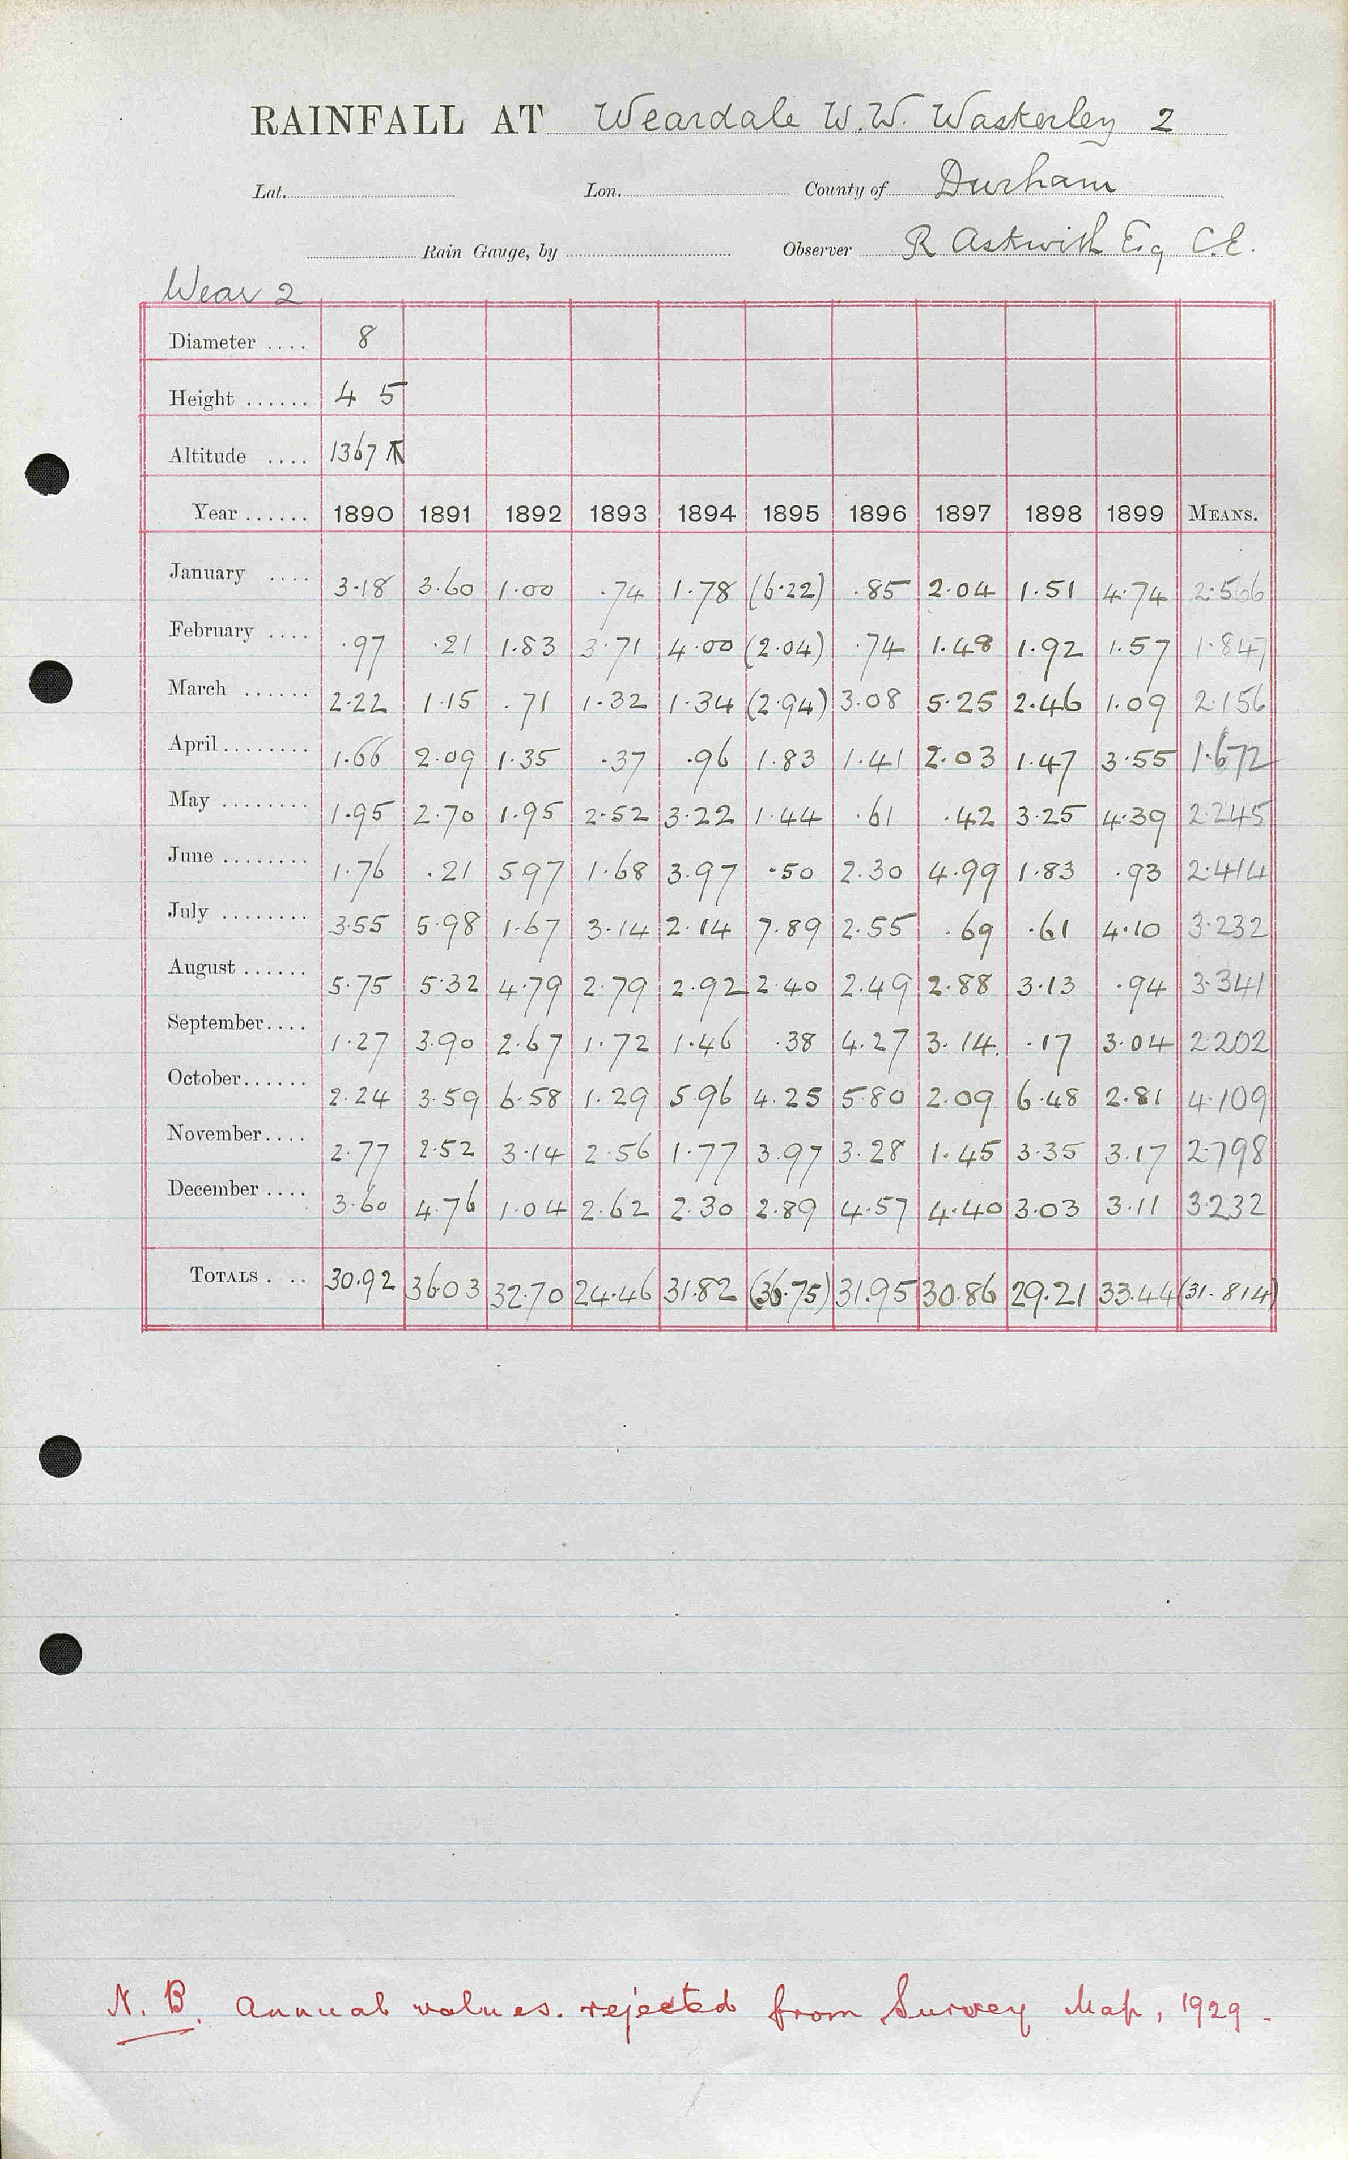 RAINFALL AT Weardale W.W. Waskerley 2
Lat. Lon. County of Durham
Rain Gauge, by Observer R Askwith Esq C.E.
Wear 2
Diameter .... 8
Height ...... 4 5
Altitude .... 1367
Year ...... 1890 1891 1892 1893 1894 1895 1896 1897 1898 1899 MEANS.
January .... 3.18 3.60 1.00 .74 1.78 (6.22) .85 2.04 1.51 4.74 2.566
February .... .97 .21 1.83 3.71 4.00 (2.04) .74 1.48 1.92 1.57 1.847
March ...... 2.22 1.15 .71 1.32 1.34 (2.94) 3.08 5.25 2.46 1.09 2.156
April ........ 1.66 2.09 1.35 .37 .96 1.83 1.41 2.03 1.47 3.55 1.672
May ........ 1.95 2.70 1.95 2.52 3.22 1.44 .61 .42 3.25 4.39 2.245
June ........ 1.76 .21 5.97 1.68 3.97 .50 2.30 4.99 1.83 .93 2.414
July ........ 3.55 5.98 1.67 3.14 2.14 7.89 2.55 .69 .61 4.10 3.232
August ...... 5.75 5.32 4.79 2.79 2.92 2.40 2.49 2.88 3.13 .94 3.341
September .... 1.27 3.90 2.67 1.72 1.46 .38 4.27 3.14. .17 3.04 2.202
October ...... 2.24 3.59 6.58 1.29 5.96 4.25 5.80 2.09 6.48 2.81 4.109
November .... 2.77 2.52 3.14 2.56 1.77 3.97 3.28 1.45 3.35 3.17 2.798
December .... 3.60 4.76 1.04 2.62 2.30 2.89 4.57 4.40 3.03 3.11 3.232
TOTALS . .. 30.92 36.03 32.70 24.46 31.82 (36.75) 31.95 30.86 29.21 33.44 (31.814)
N.B. Annual values. rejected from Survey Map, 1929.